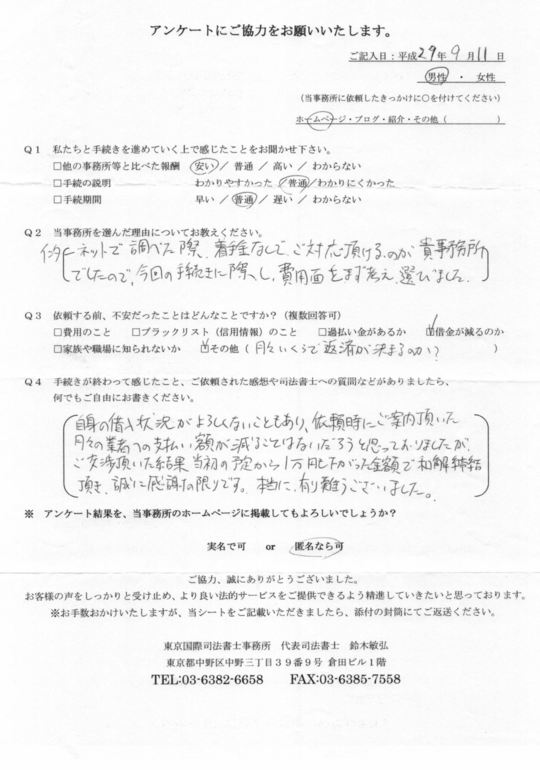 アンケートにご協力をお願いいたします。
ご記入日：平成29年9月11日
男性 ・ 女性
(当事務所に依頼したきっかけに○を付けてください)
ホームページ・ブログ・紹介・その他（　　　　　　）
Q1 私たちと手続きを進めていく上で感じたことをお聞かせ下さい。
□他の事務所等と比べた報酬 安い／ 普通 ／ 高い ／ わからない
□手続の説明 わかりやすかった ／普通／わかりにくかった
□手続期間 早い／ 普通／ 遅い ／ わからない
Q2 当事務所を選んだ理由についてお教えください。
インターネットで調べた際、着手金なしで、ご対応頂けるのが貴事務所
でしたので、今回の手続きに際し、費用面をまず考え、選びました。
Q3 依頼する前、不安だったことはどんなことですか？（複数回答可）
□費用のこと □ブラックリスト（信用情報）のこと □過払い金があるか □借金が減るのか
□家族や職場に知られないか □その他（月々いくらで返済が決まるのか？）
Q4 手続きが終わって感じたこと、ご依頼された感想や司法書士への質問などがありましたら、
何でもご自由にお書きください。
自身の借入状況がよろしくないこともあり、依頼時にご案内頂いた
月々の業者への支払い額が減ることはないだろうと思っておりましたが、
ご交渉頂いた結果、当初の予定から1万円も下がった金額で和解締結
頂き、誠に感謝の限りです。本当に、有り難うございました。
※ アンケート結果を、当事務所のホームページに掲載してもよろしいでしょうか？
実名で可 or 匿名なら可
ご協力、誠にありがとうございました。
お客様の声をしっかりと受け止め、より良い法的サービスをご提供できるよう精進していきたいと思っております。
※お手数おかけいたしますが、当シートをご記載いただきましたら、添付の封筒にてご返送ください。
東京国際司法書士事務所 代表司法書士 鈴木敏弘
東京都中野区中野三丁目39番9号 倉田ビル1階
TEL:03-6382-6658 FAX:03-6385-7558